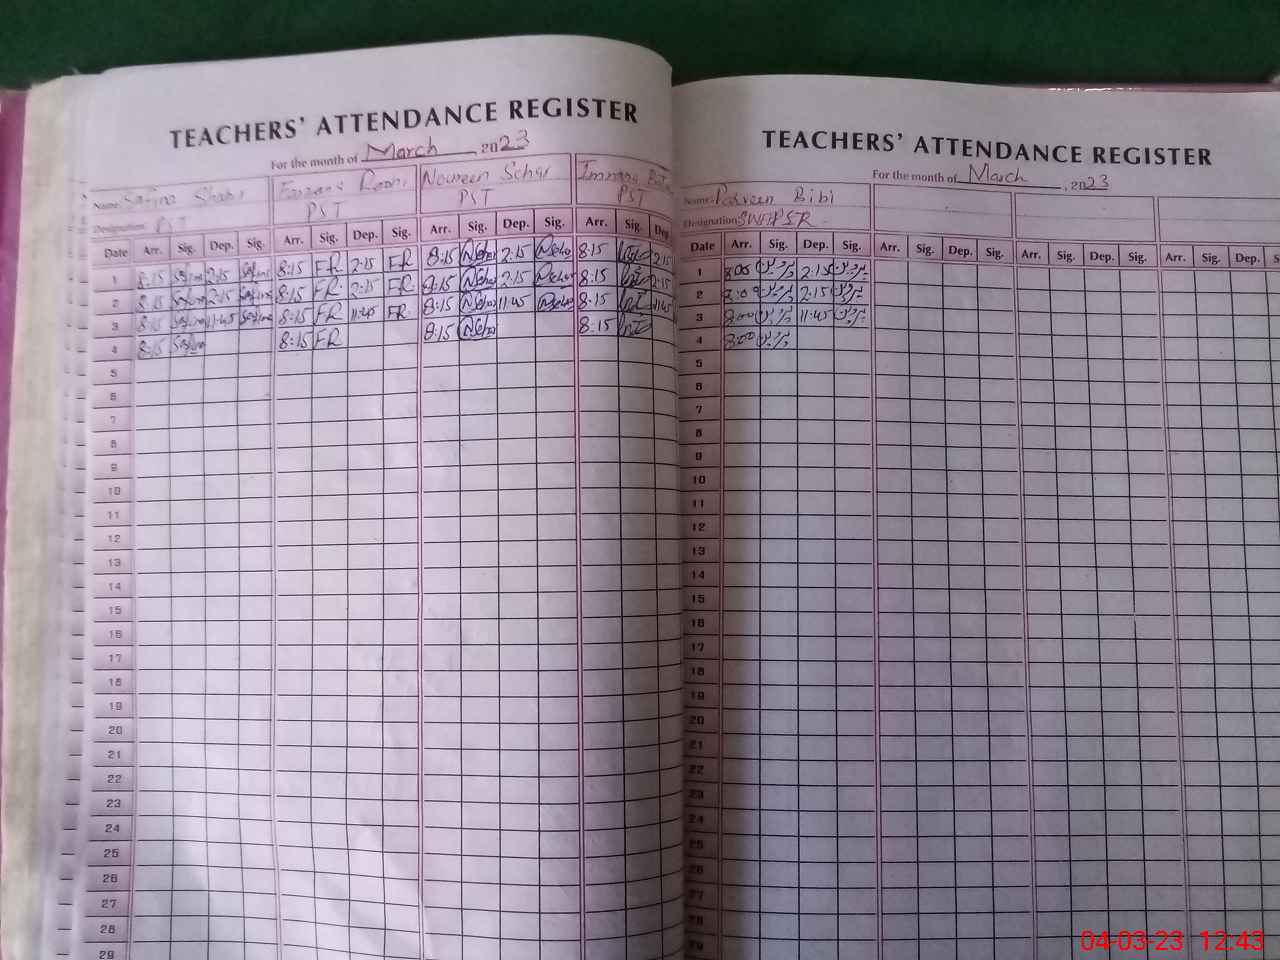 TEACHERS' ATTENDANCE REGISTER
For the month of March, 2023
Name: Safina Shabir Noureen Seher
Designation: PST PST PST PST
Date Arr. Sig. Dep. Sig. Arr. Sig. Dep. Sig. Arr. Sig. Dep. Sig. Arr. Sig. Dep
1 8:15 Safina 2:15 Safina 8:15 FR 2:15 FR 8:15 NSeher 2:15 NSeher 8:15 2:15
2 8:15 Safina 2:15 Safina 8:15 FR 2:15 FR 8:15 NSeher 2:15 NSeher 8:15 2:15
3 8:15 Safina 11:45 Safina 8:15 FR 11:45 FR 8:15 NSeher 11:45 NSeher 8:15 11:45
4 8:15 Safina 8:15 FR 8:15 NSeher 8:15
5
6
7
8
9
10
11
12
13
14
15
16
17
18
19
20
21
22
23
24
25
26
27
28
29
TEACHERS' ATTENDANCE REGISTER
For the month of March, 2023
Name: Parveen Bibi
Designation:
Date Arr. Sig. Dep. Sig. Arr. Sig. Dep. Sig. Arr. Sig. Dep. Sig. Arr. Sig. Dep. S
1 8:00 پروین 2:15 پروین
2 8:00 پروین 2:15 پروین
3 8:00 پروین 11:45 پروین
4 8:00 پروین
5
6
7
8
9
10
11
12
13
14
15
16
17
18
19
20
21
22
23
24
25
26
27
28
29
04-03-23 12:43